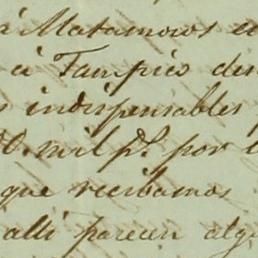 á Matamoros e
á Tampico des
s indispensables
0. mil p.s por l
que recibamos
alli parecen alg